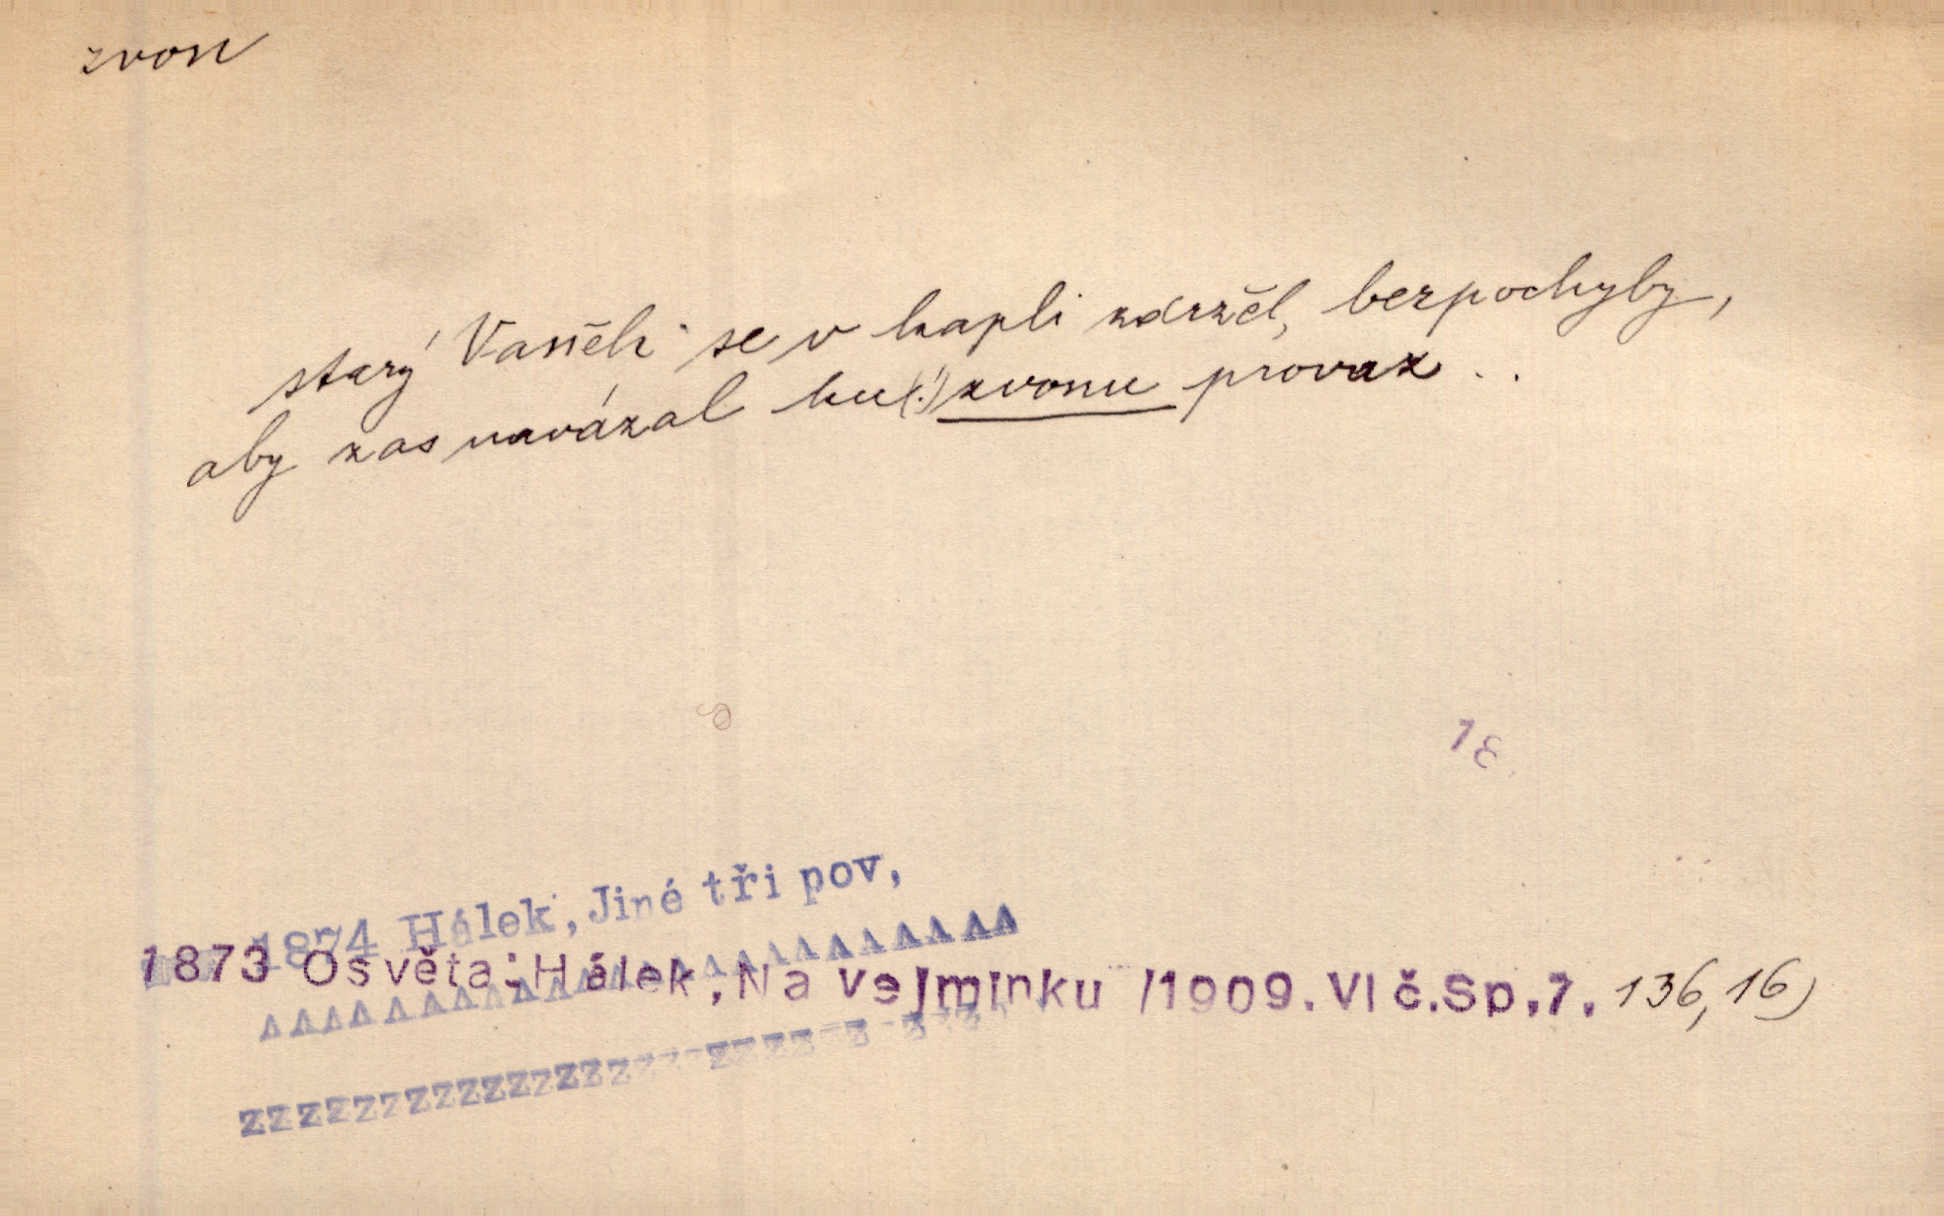 zvon
starý Vaněk se v kapli zdržel, bezpochyby,
aby zas navázal ku(!) zvonu provaz . .
18
1874 Hálek, Jiné tři pov,
1873 Osvěta: Hálek, Na vejminku /1909. VI č. Sp. 7. 136, 16)